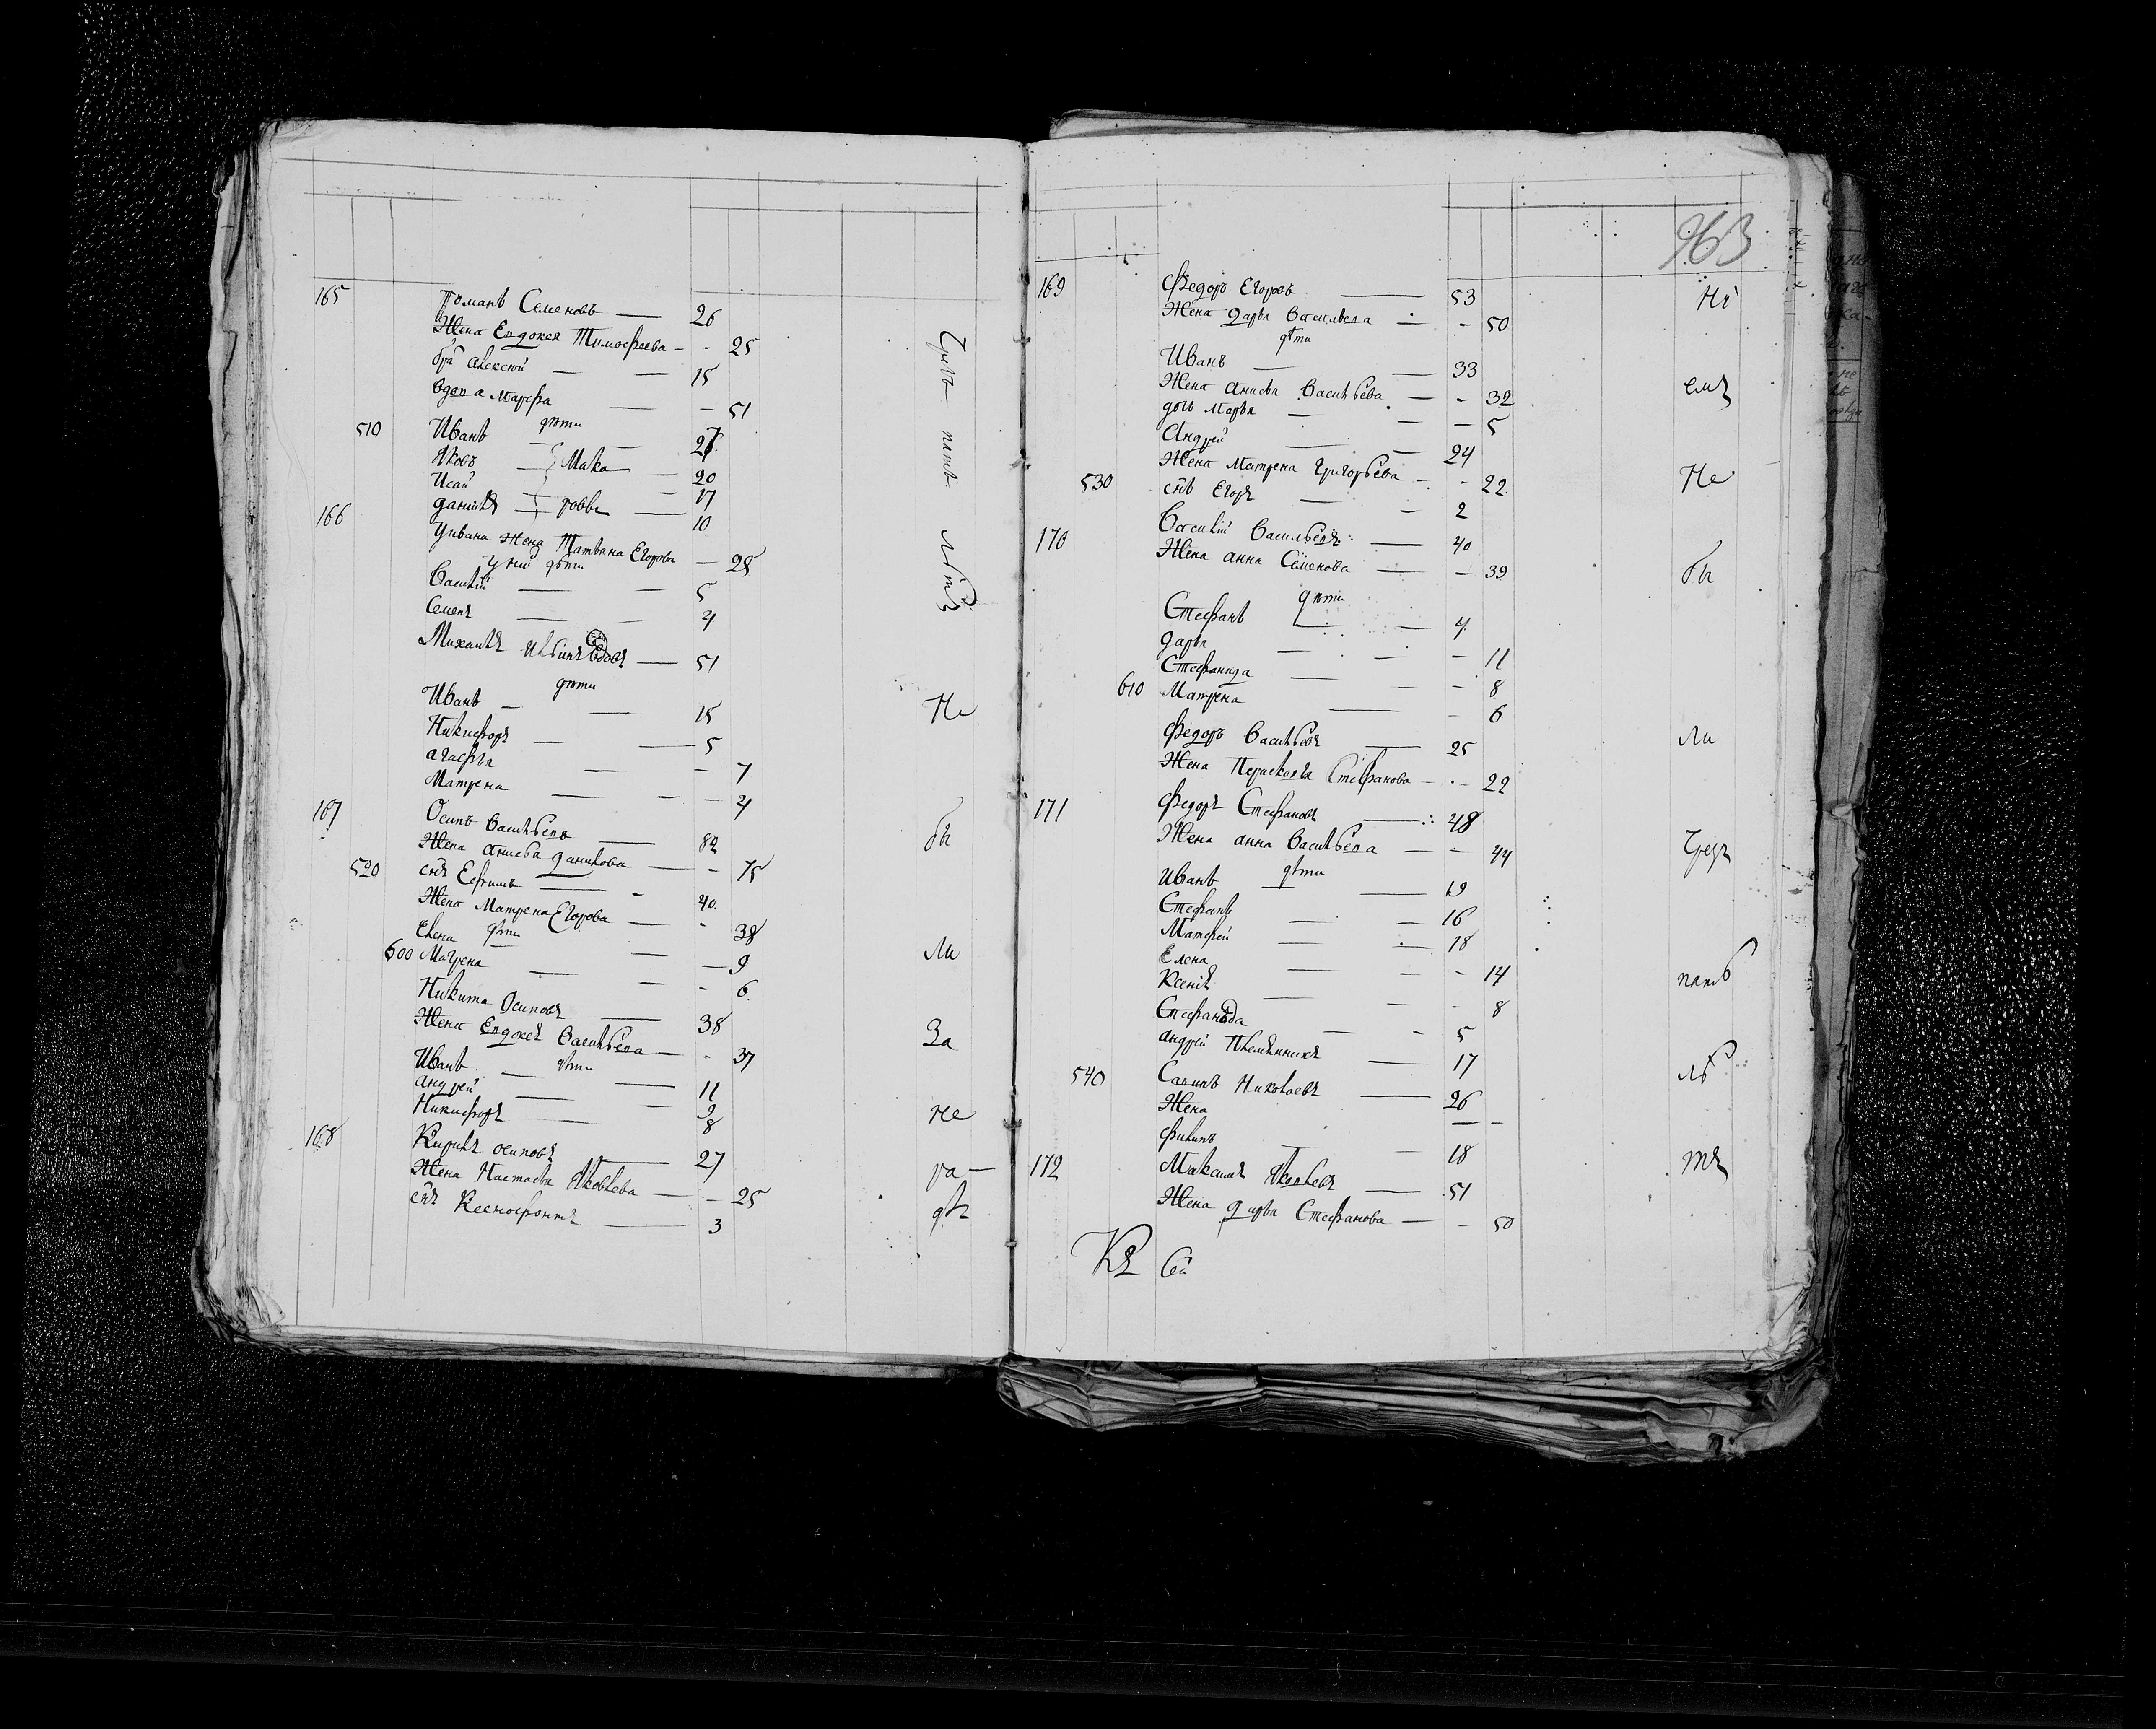 165 Романъ Семеновъ — 26
Жена Евдокея Тимофеева — - 25
братъ Алексѣй — — 15
Вдова Марфа — - 51
дѣти
510 Иванъ — — 27
Яковъ — 20
Исай — 17
Данилъ — 10
166 Уивана жена Татьяна Егорова — 28
У них дѣти
Василий — 5
Семенъ — 4
Михаилъ — 51
дѣти
Иванъ — — 15
Никифоръ — — 5
Агафья — - 7
Матрена — - - 4
167 Осипъ Васильевъ — 82
Жена Данилова — - 75
520 сынъ Ефимъ — - 40
Жена Матрена Егорова — - 38
дѣти
Елена — — 9
600 Матрена — - - 6
Никита Осиповъ — 38
Жена Евдокея Васильева — - 37
дѣти
Иванъ — — 11
Андрей — - 9
Никифоръ — 8
168 Кирилъ Осиповъ — 27
Жена Настасья Яковлева — - 25
сынъ Ксенофонтъ — 3
Чрезъ пять лѣтъ
Не
бы
ли
За
не
ра-
дѣ
963
169 Федоръ Егоровъ — 53
Жена Дарья Васильева — - 50
дѣти
Иванъ — — 33
Жена Анисья Васильева — - 32
дочь Марья — - - 5
Андрей — - 24
Жена Матрена Григорьева - - 22
530 сынъ Егоръ — - 2
170 Василий Васильевъ — 40
Жена Анна Семенова — - 39
дѣти
Стефанъ — - 4
Дарья — - - 11
Стефанида — - - 8
610 Матрена — - 6
Федоръ Васильевъ — 25
Жена Стефанова - - 22
171 Федоръ Стефановъ — 48
Жена Анна Васильева — - 44
дѣти
Иванъ — — 19
Стефанъ — - 16
Матфей — - 18
Елена — - - 14
Ксенія — - - 8
Стефанида — - 5
Андрей племянникъ — 17
540 Савинъ Николаевъ — 26
Жена — -
Филипъ — - 18
172 Максимъ Яковлевъ — 51
Жена Дарья Стефанова — - 50
Не
Не
бы
ли
Чрез
пять
лѣ
тъ
Къ Сей